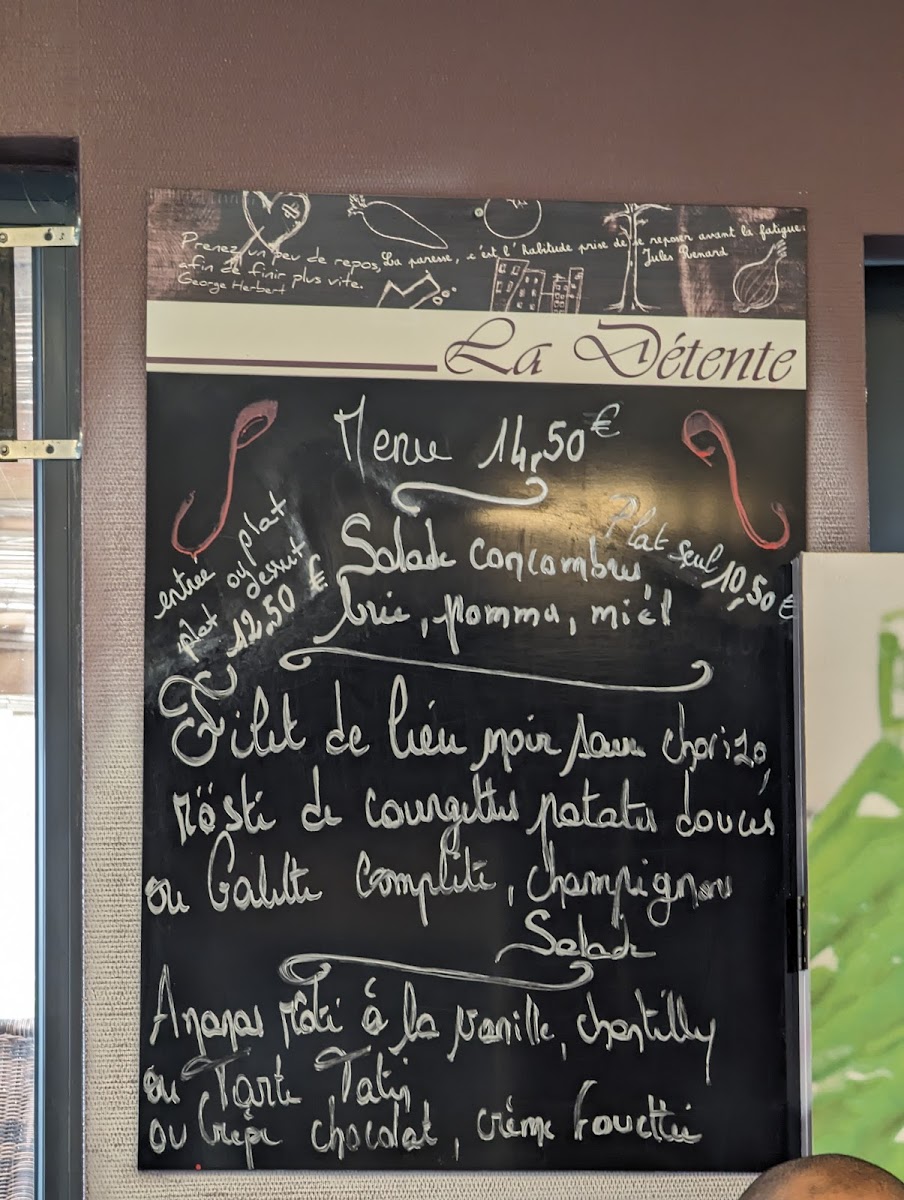 Prenez un peu de repos,
afin de finir plus vite.
George Herbert
La paresse, c'est l'habitude prise de se reposer avant la fatigue.
Jules Renard
La Détente
Menu 14,50€
entrée plat ou plat
plat dessert
12,50 €
Plat seul
10,50 €
Salade concombre
brie, pomme, miel
Filet de lieu noir sauce chorizo,
rösti de courgettes patates douces
ou Galette Complète, champignon
Salade
Ananas rôti à la vanille, chantilly
ou Tarte Tatin
ou Crêpe chocolat, crème fouettée